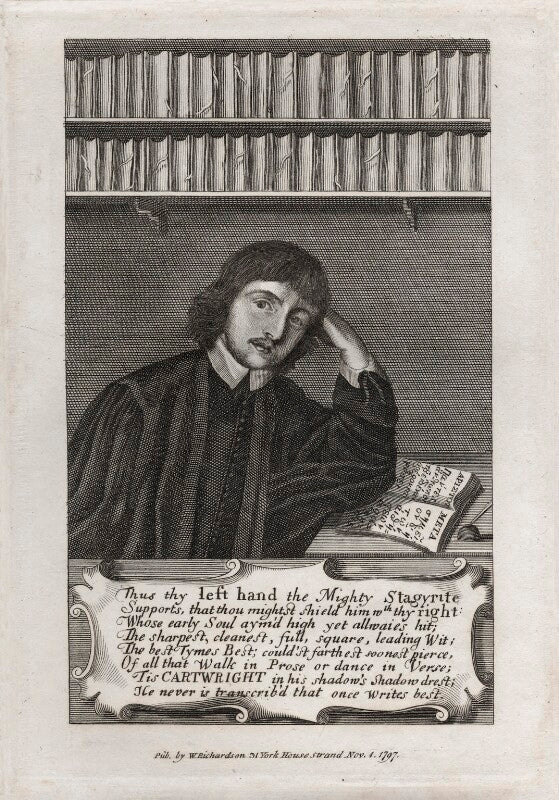 ARISTOT
META
Thus thy left hand the Mighty Stagyrite
Supports, that thou mightst shield him wth thy right:
Whose early Soul aym'd high yet allwaies hit;
The sharpest, cleanest, full, square, leading Wit;
The best Tymes Best; could'st farthest soonest pierce,
Of all that Walk in Prose or dance in Verse;
Tis CARTWRIGHT in his shadow's Shadow drest;
He never is transcrib'd that once writes best.
Pub. by W. Richardson York House Strand Nov. 1. 1797.